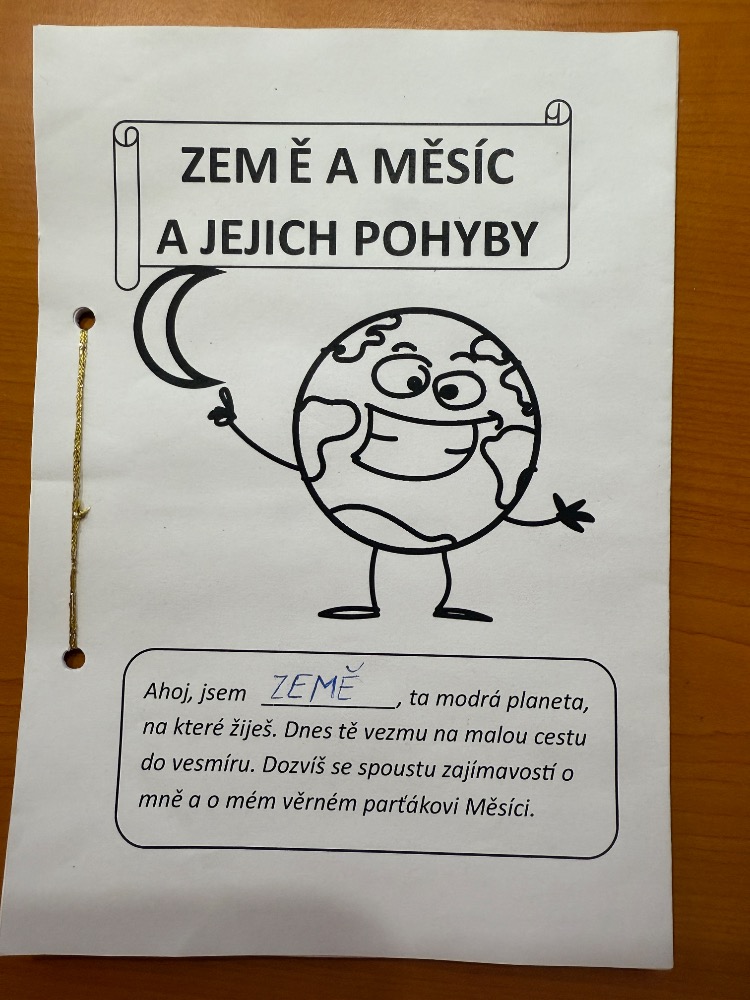 ZEMĚ A MĚSÍC
A JEJICH POHYBY
Ahoj, jsem ZEMĚ, ta modrá planeta,
na které žiješ. Dnes tě vezmu na malou cestu
do vesmíru. Dozvíš se spoustu zajímavostí o
mně a o mém věrném parťákovi Měsíci.